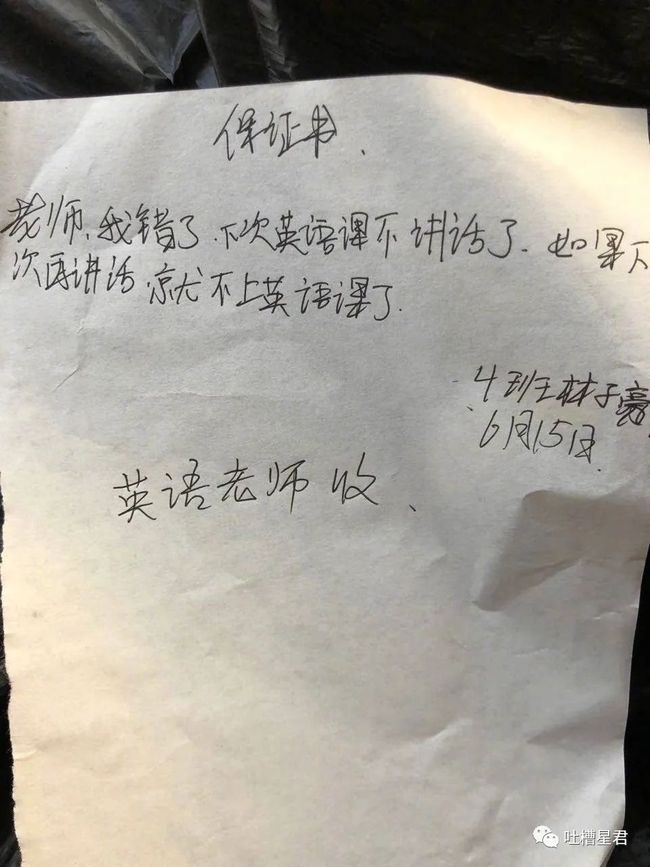 保证书.
老师,我错了.下次英语课不讲话了.如果下
次再讲话.就不上英语课了.
4班林子豪
6月15日.
英语老师收、
吐槽星君